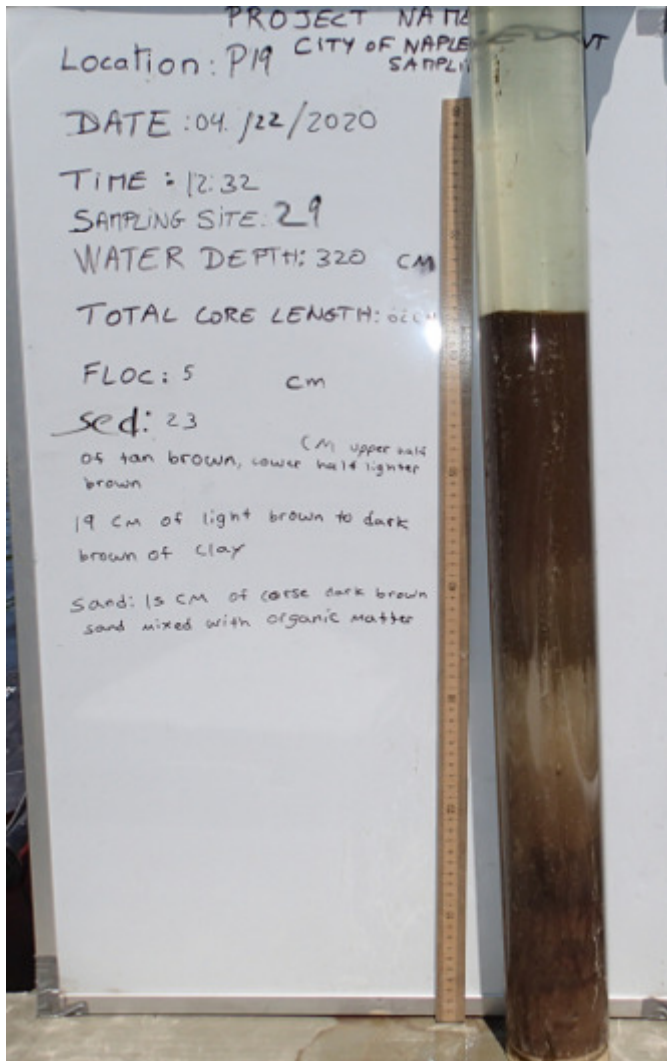 PROJECT NAME
CITY OF NAPLES SEDIMENT
Location: P19
SAMPLING
DATE: 04/22/2020
TIME: 12:32
SAMPLING SITE: 29
WATER DEPTH: 320 CM
TOTAL CORE LENGTH:
FLOC: 5 cm
sed: 23
CM upper half
of tan brown, lower half lighter
brown
19 CM of light brown to dark
brown of clay
Sand: 15 CM of corse dark brown
sand mixed with organic matter